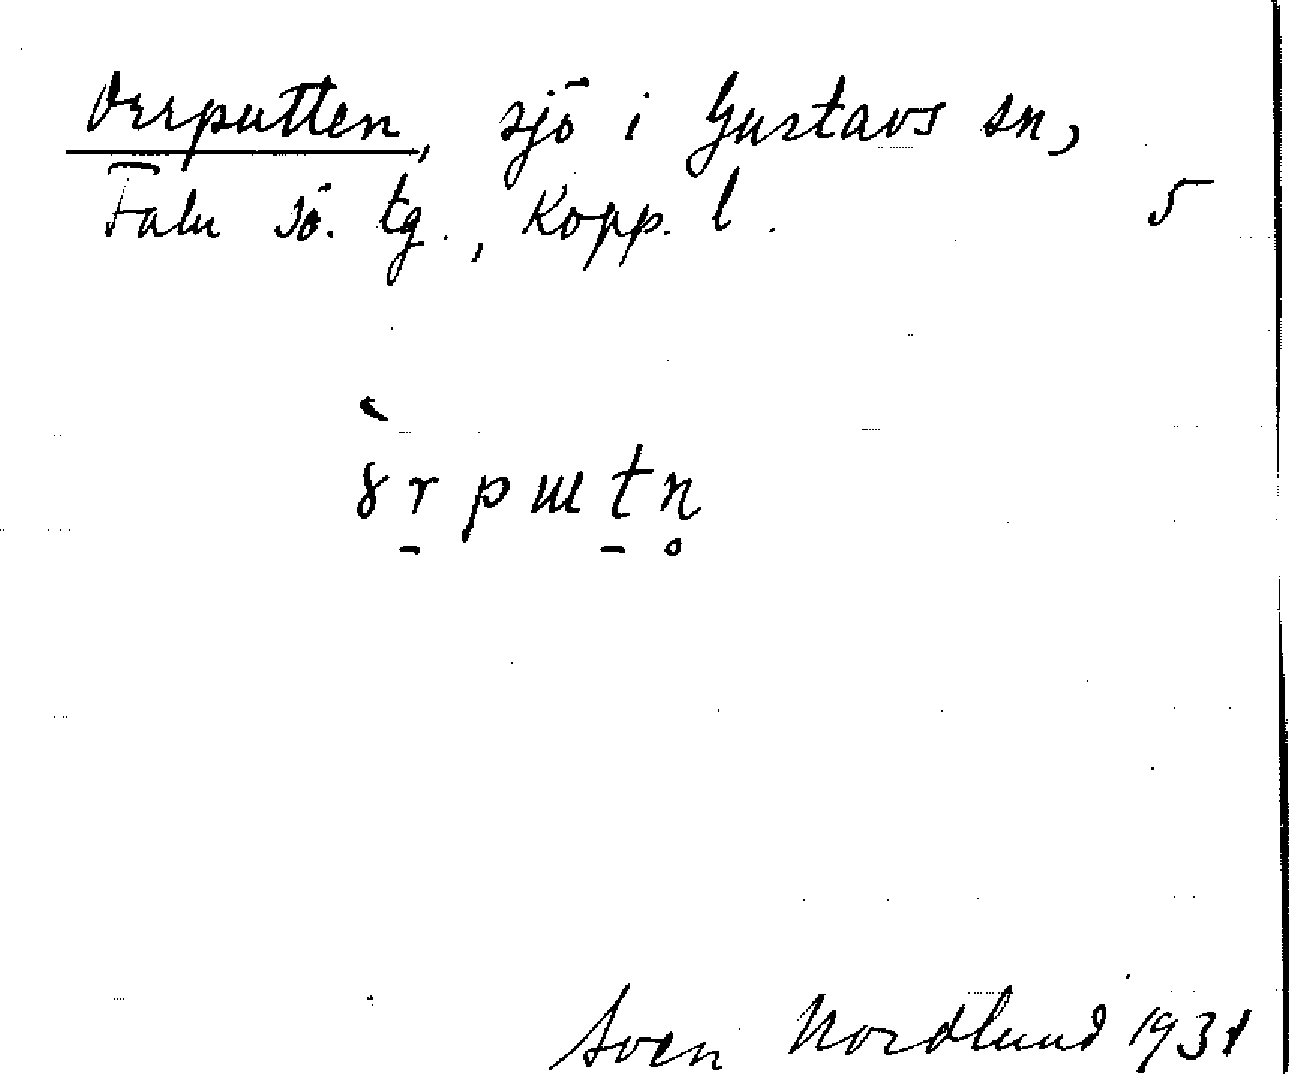 Orrputten, sjö i Gustavs sn,
Falu sö. tg., Kopp. l. 5
Sven Nordlund 1931